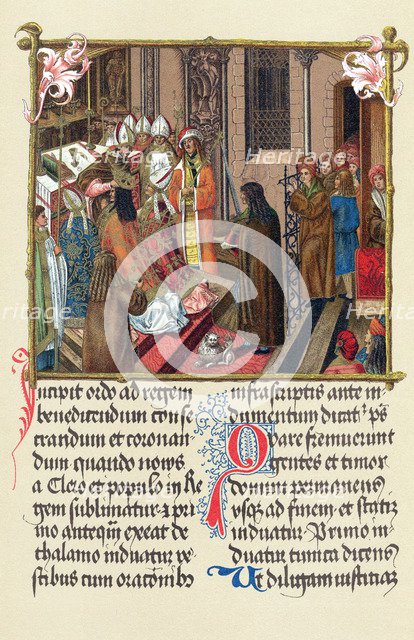 Incipit ordo ad regem
benedicendum conse
crandum et coronan
dum quando novus
a Clero et populo in Re
gem sublimatur. Pri
mo anteqm exeat de
thalamo induatur ve
stibus cum orationibs
infrascriptis ante in
dumentum dicatr ps
Quare fremuerunt
gentes et timor
domini permanens
usqz ad finem et statim
induatur Primo in
duatur tunica dicens
Ut diligam iustitiam